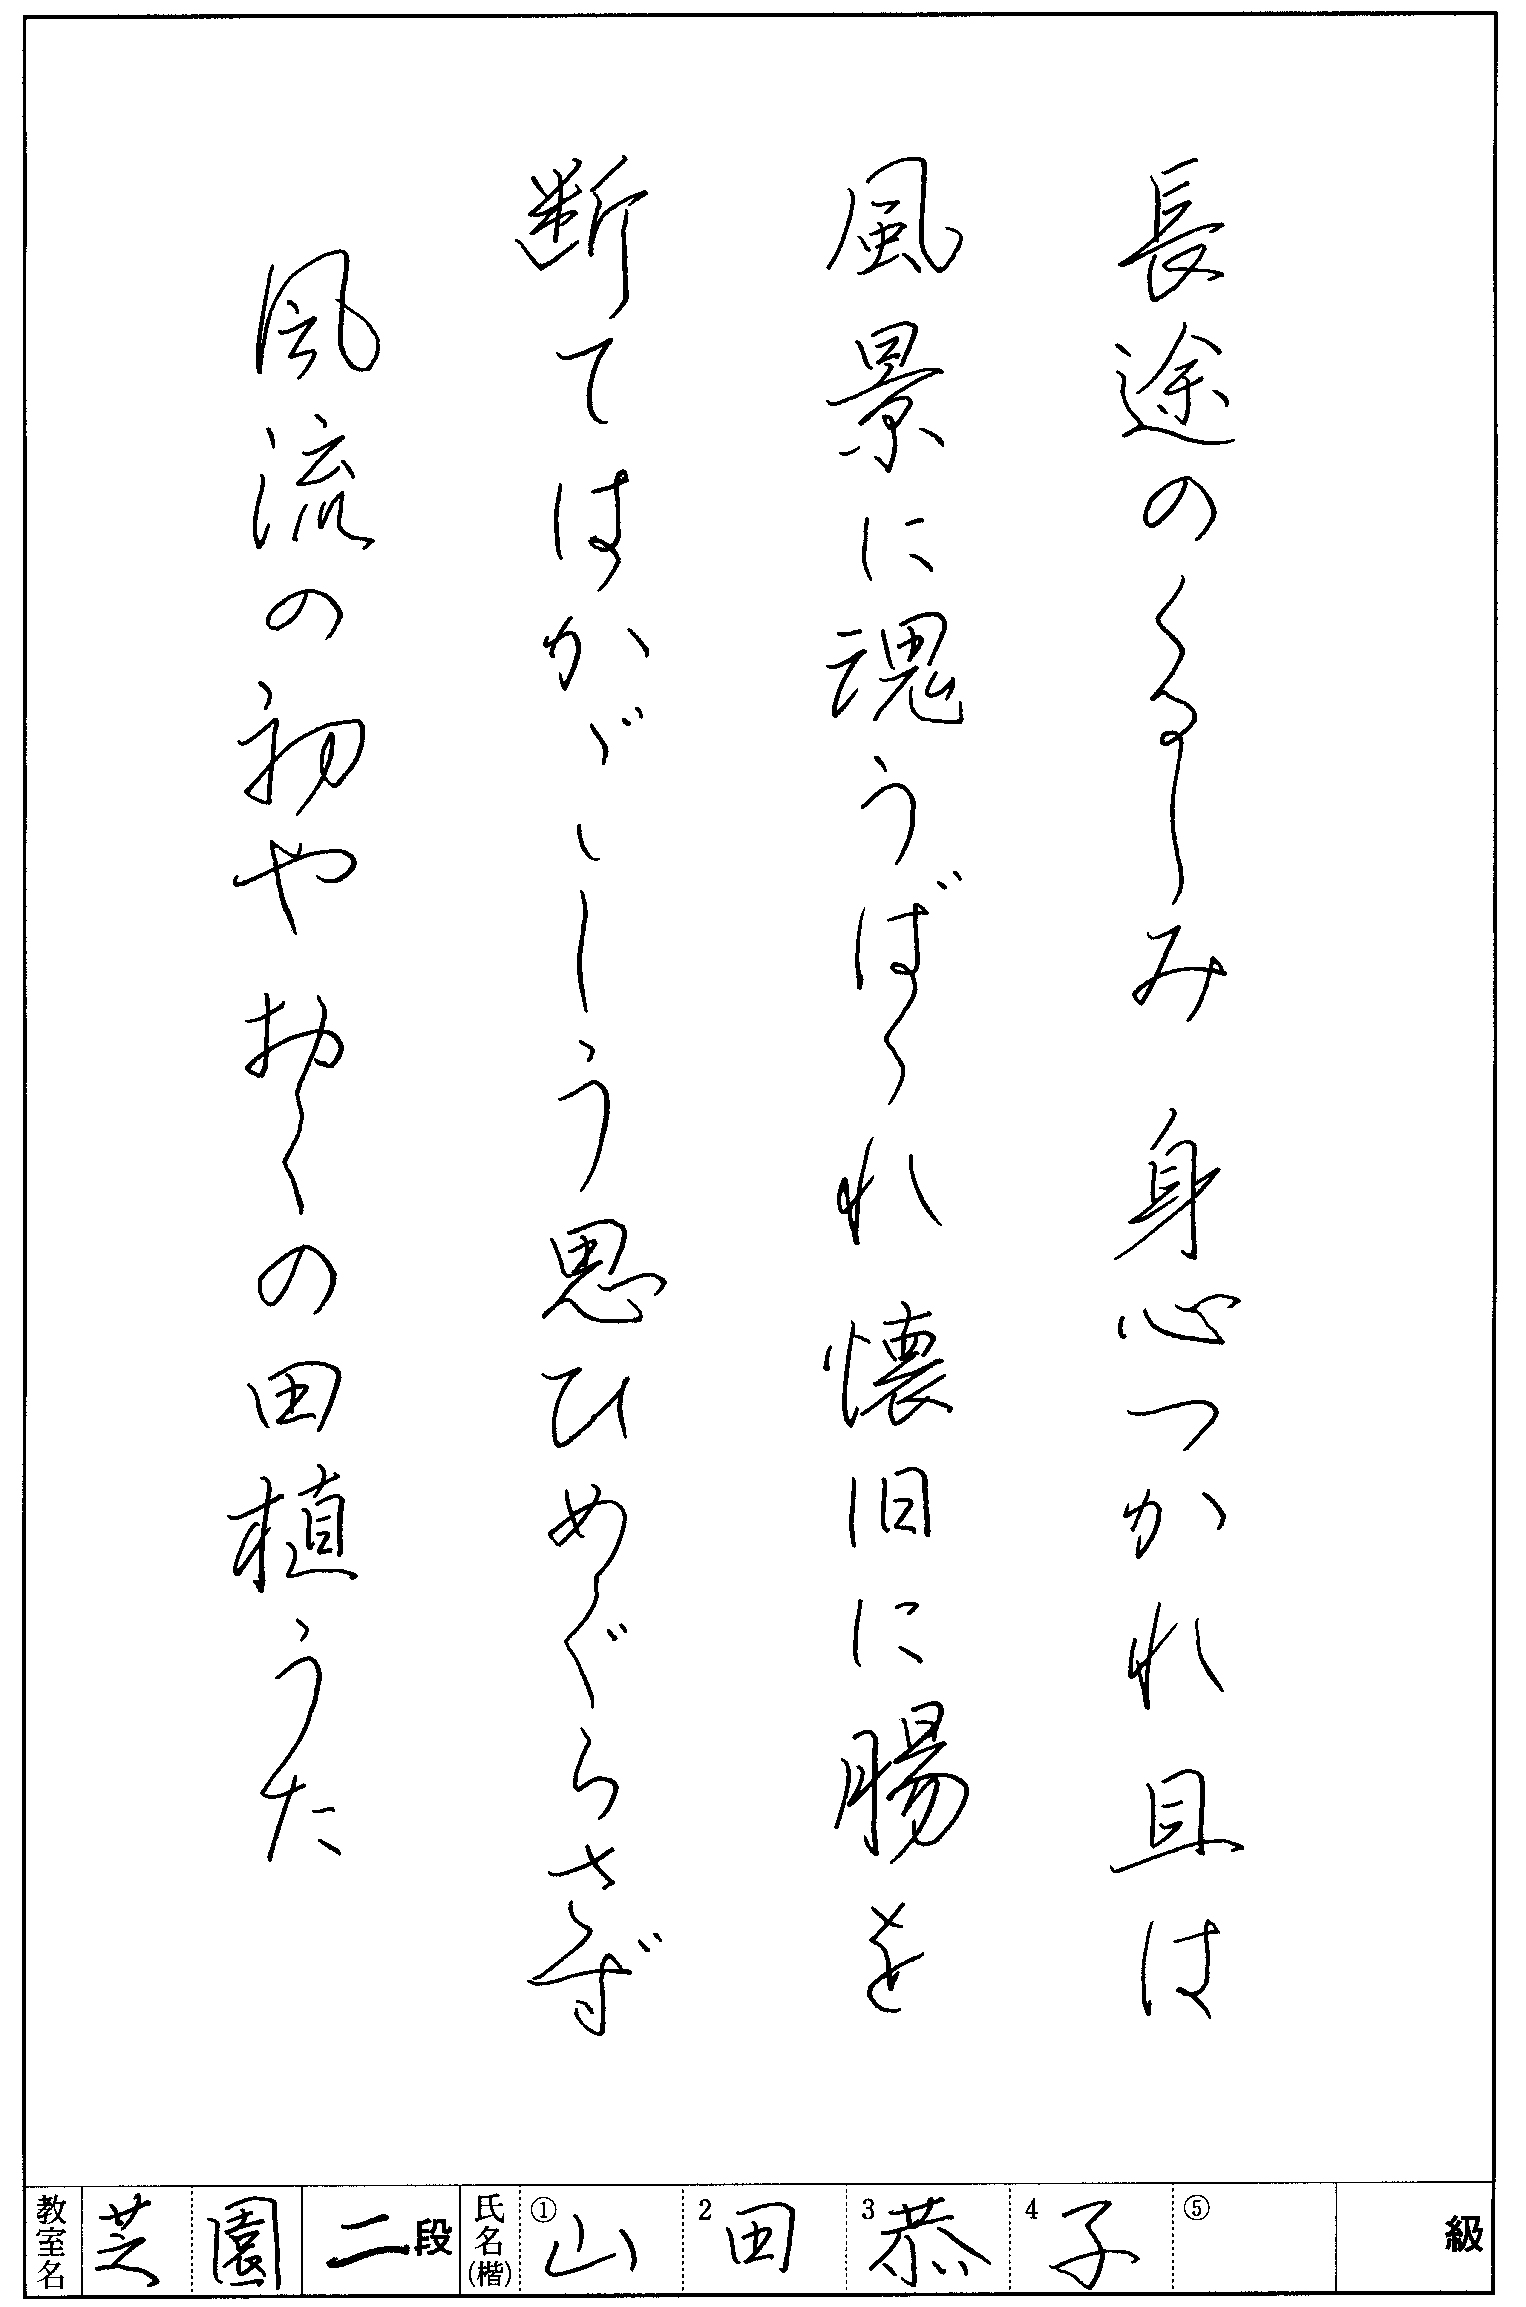 長途のくるしみ 身心つかれ且は
風景に魂うばゝれ懐旧に腸を
断てはかゞゝしう思ひめぐらさず
風流の初やおくの田植うた
教室名 芝園 二段 氏名(楷) ①山 2田 3恭 4子 ⑤ 級